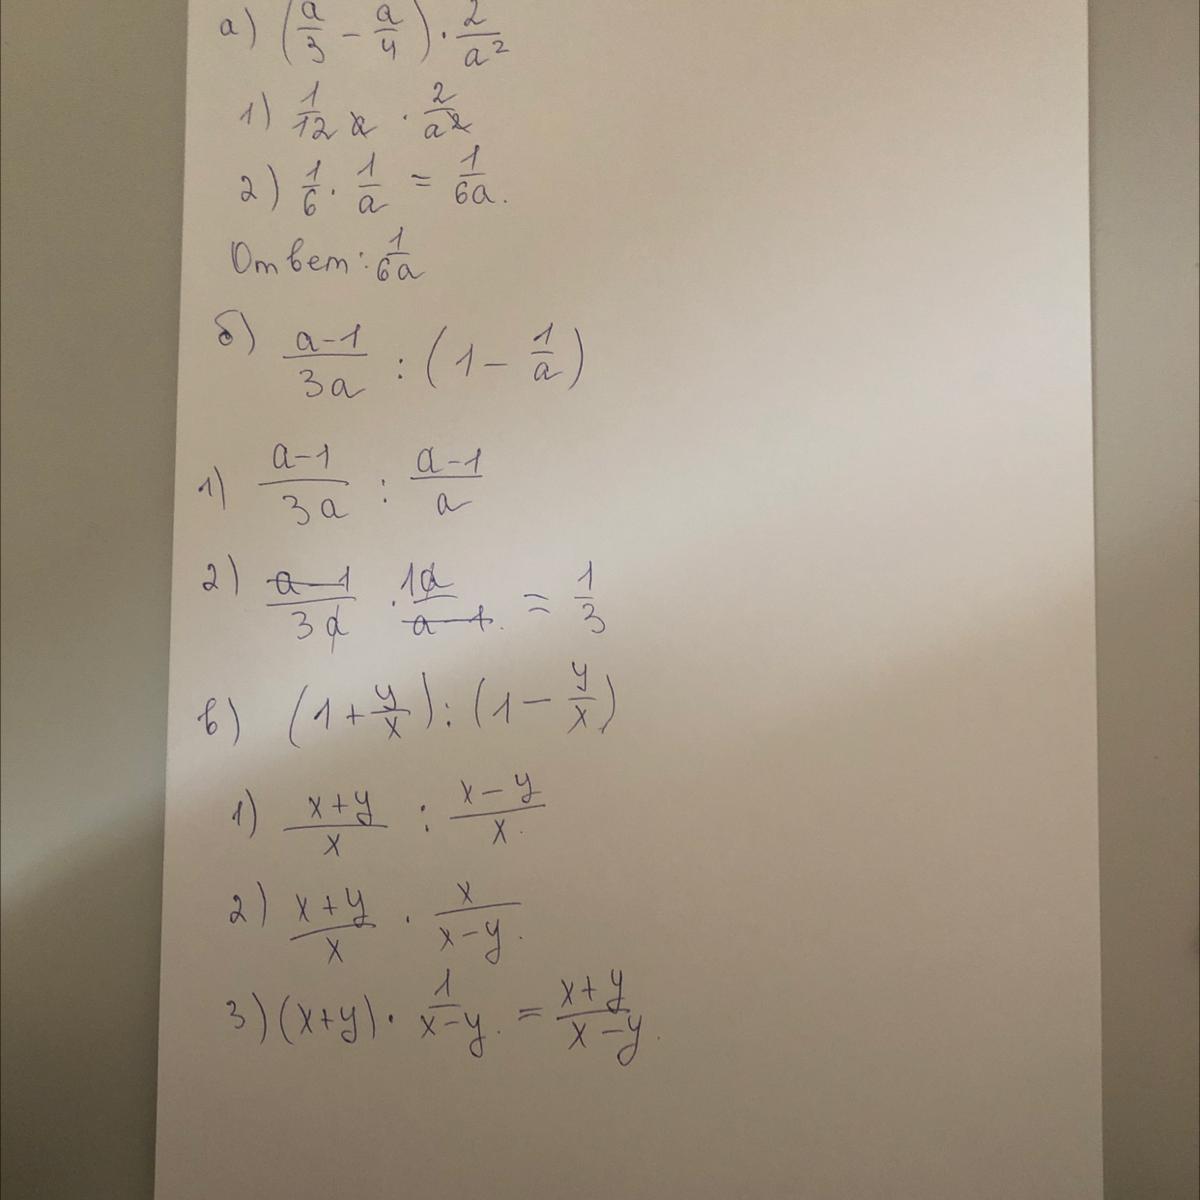 а) (a/3 - a/4) · 2/a²
1) 1/12 a · 2/a²
2) 1/6 · 1/a = 1/6a.
Ответ: 1/6a
б) a-1/3a : (1 - 1/a)
1) a-1/3a : a-1/a
2) a-1/3a · 1a/a-1. = 1/3
в) (1 + y/x) : (1 - y/x)
1) x+y/x : x-y/x.
2) x+y/x · x/x-y.
3) (x+y) · 1/x-y. = x+y/x-y.